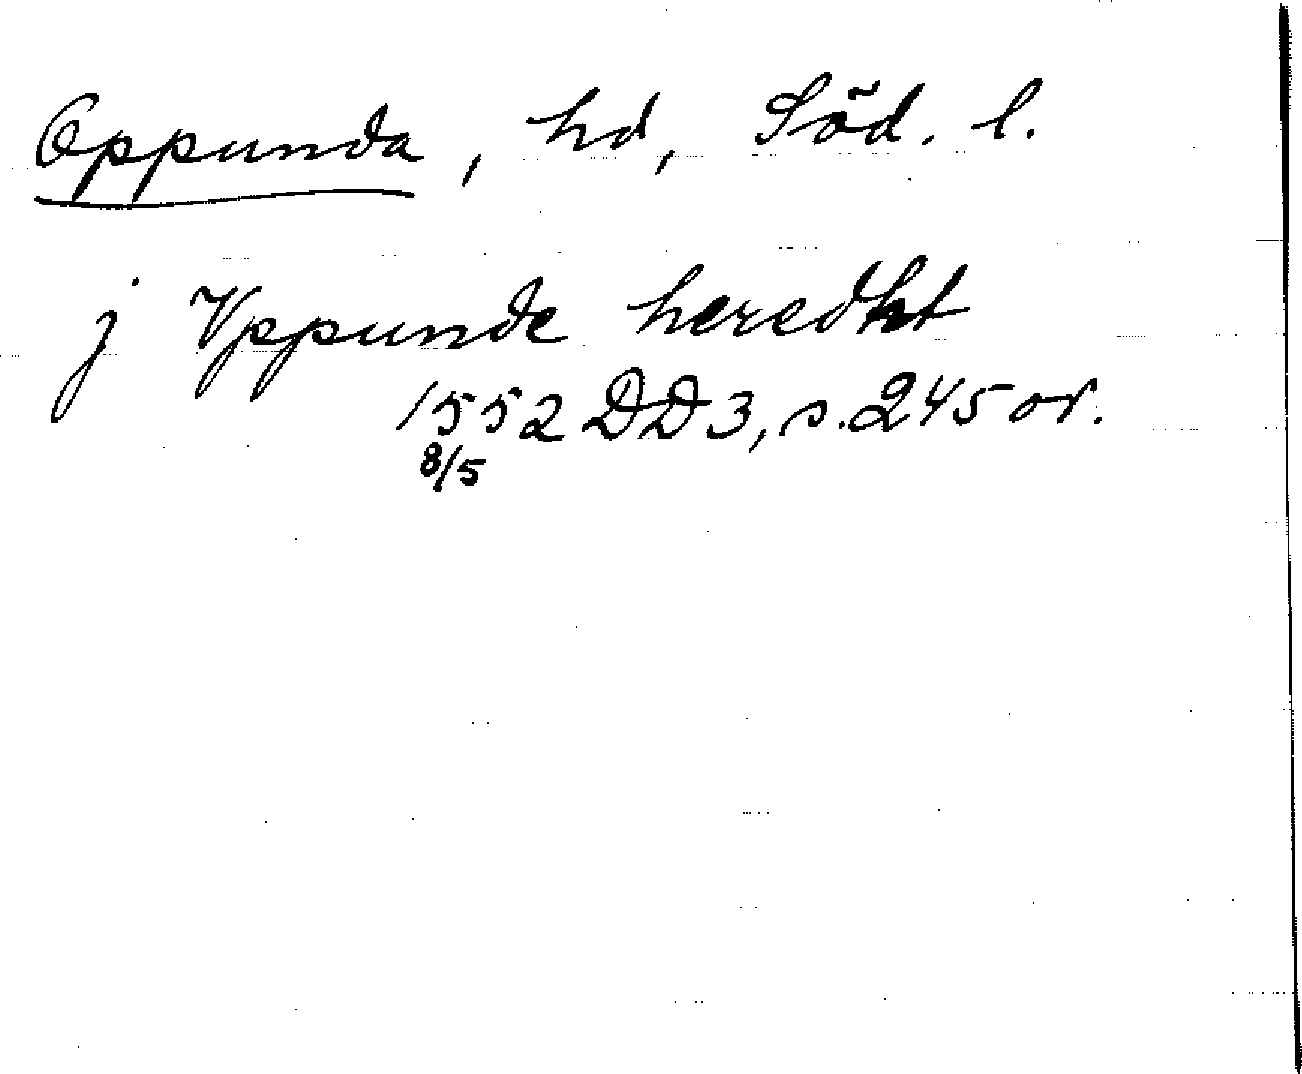 Oppunda, hd, Söd. l.
j Vppunde heredht
1552 DD3, s. 245 or.
8/5